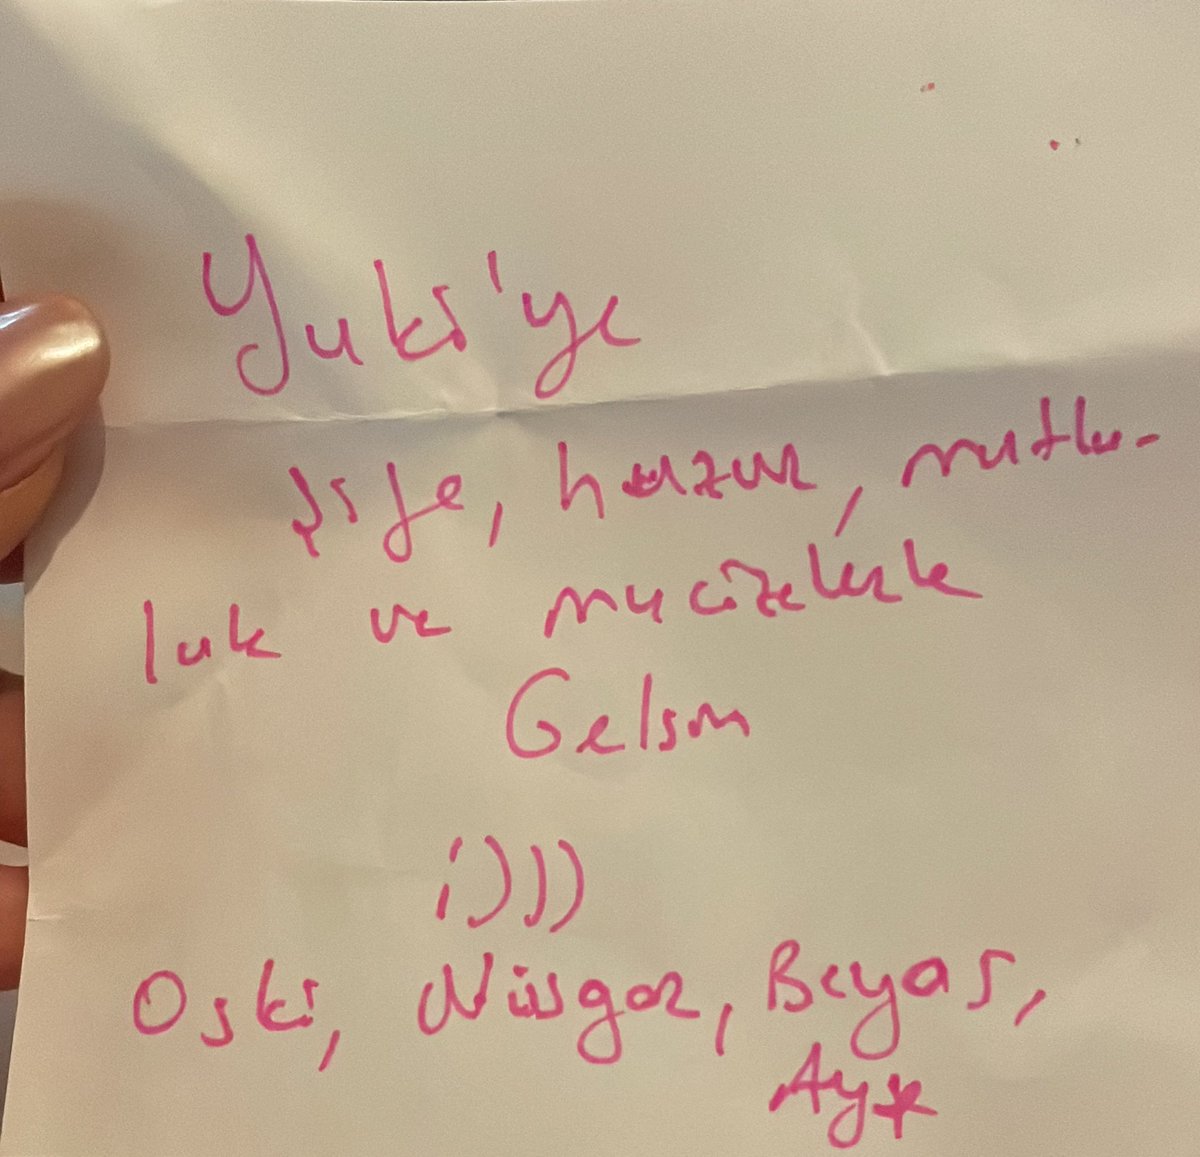 Yuki'ye
Şife, huzur, mutlu-
luk ve mucizelerle
Gelsin
;)))
Oski, Rüsgar, Beyas,
Ay*